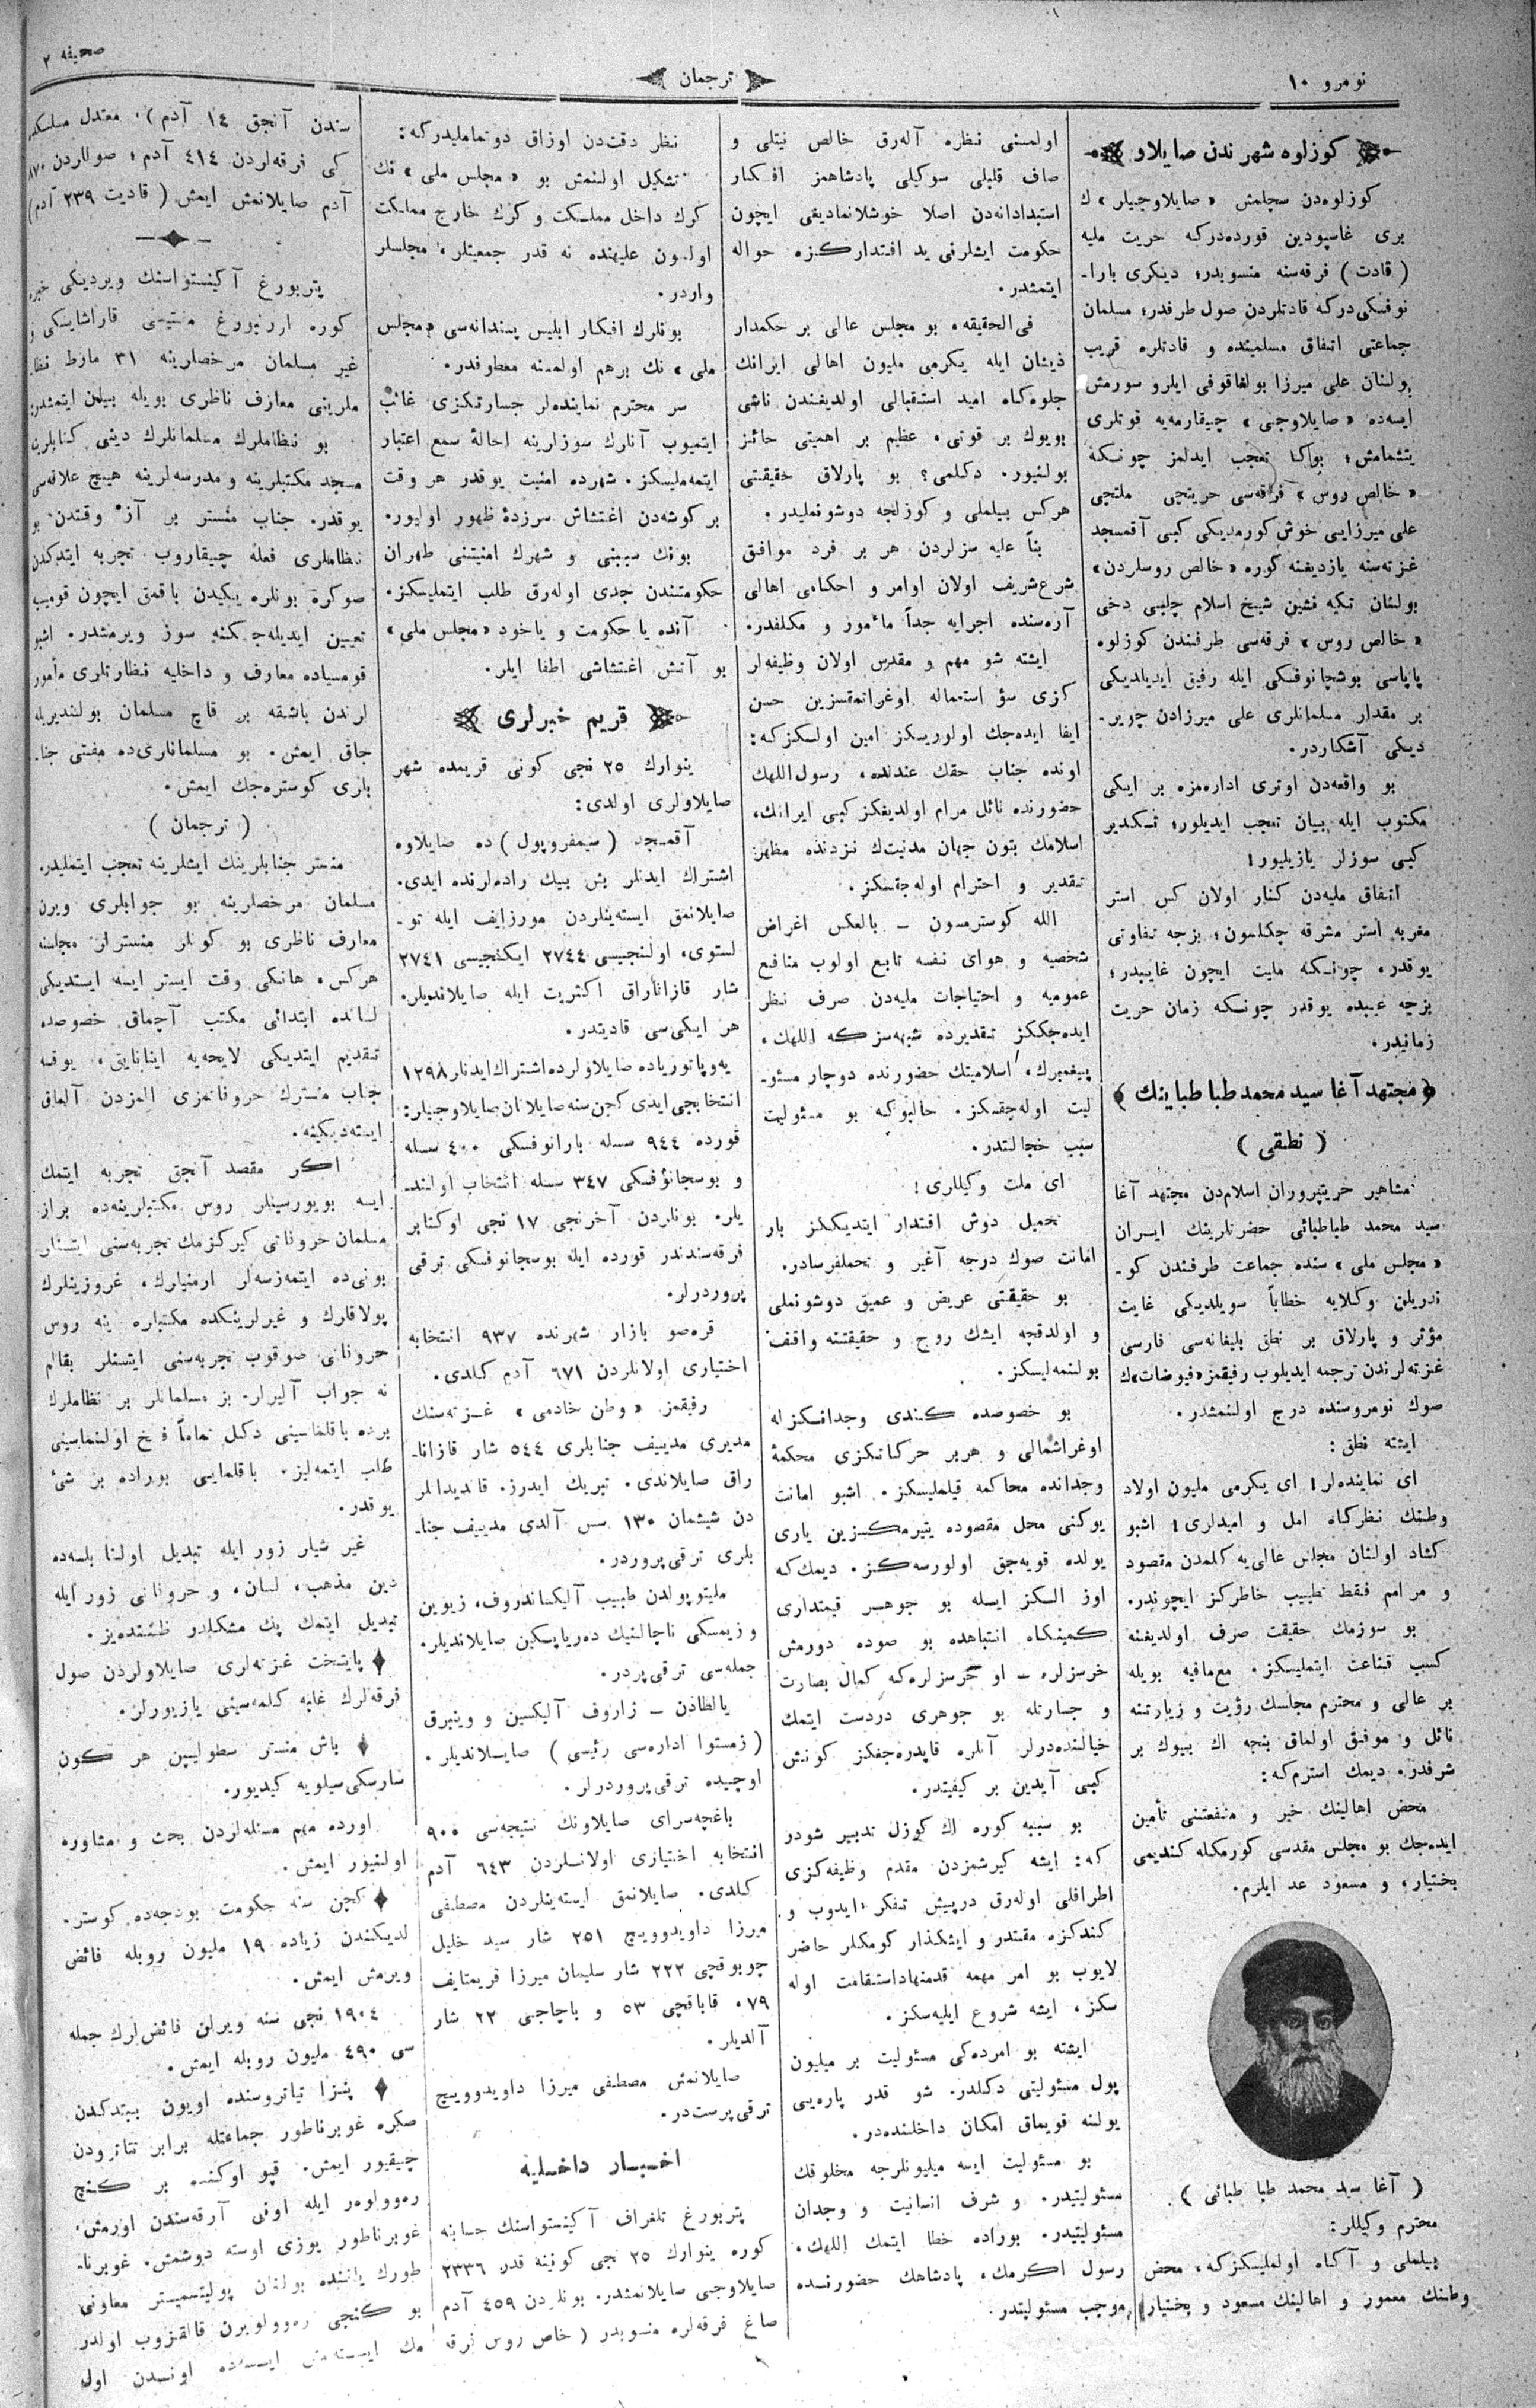 نومرو ١٠
ترجمان
صحیفه ٢
كوزلوه شهرندن صایلاو
كوزلوه‌دن سچلمش «صایلاوجیلر»ك
بری غاسپودین قورده‌دركه حریت ملیه
(قادت) فرقه‌سنه منسوبدر؛ دیكری بارا-
نوفسكی‌دركه قادتلردن صول طرفدر؛ مسلمان
جماعتی اتفاق مسلمینده و قادتلره قریب
بولنان علی میرزا بولغاقوفی ایلرو سورمش
ایسه‌ده «صایلاوجی» چیقارمه‌یه قوتلری
یتشمامش؛ بوكا تعجب ایدلمز چونكه
«خالص روس» فرقه‌سی حریتجی ملتجی
علی میرزایی خوش كورمدیكی كبی آقمسجد
غزته‌سنه یازدیغنه كوره «خالص روسلردن»
بولنان تكیه نشین شیخ اسلام چلبی دخی
«خالص روس» فرقه‌سی طرفندن كوزلوه
پاپاسی بوشچانوفسكی ایله رفیق ایدیلدیكی
بر مقدار مسلمانلری علی میرزادن چویر-
دیكی آشكاردر.
بو واقعه‌دن اوتری اداره‌مزه بر ایكی
مكتوب ایله بیان تعجب ایدیلور؛ تكدیر
كبی سوزلر یازیلیور!
اتفاق ملیه‌دن كنار اولان كس استر
مغربه استر مشرقه چكلسون؛ بزجه تفاوتی
یوقدر، چونكه ملیت ایچون غاییبدر؛
بزجه عیبده یوقدر چونكه زمان حریت
زمانیدر.
مجتهد آغا سید محمد طبا طباینك
(نطقی)
مشاهیر حریتپروران اسلام‌دن مجتهد آغا
سید محمد طباطبائی حضرتلرینك ایران
«مجلس ملی» سنده جماعت طرفندن كو-
ندریلن وكلایه خطاباً سویلدیكی غایت
مؤثر و پارلاق بر نطق بلیغانه‌سی فارسی
غزته‌لرندن ترجمه ایدیلوب رفیقمز «فیوضات»ك
صوك نومروسنده درج اولنمشدر.
ایشته نطق:
ای نماینده‌لر! ای یكرمی ملیون اولاد
وطنك نظركاه امل و امیدلری! اشبو
كشاد اولنان مجلس عالی‌یه كلمدن مقصود
و مرامم فقط تطییب خاطركز ایچوندر.
بو سوزمك حقیقت صرف اولدیغنه
كسب قناعت ایتملیسكز. مع‌مافیه بویله
بر عالی و محترم مجلسك رؤیت و زیارتنه
نائل و موفق اولماق بنجه اك بیوك بر
شرفدر. دیمك استرم‌كه:
محض اهالینك خیر و منفعتنی تأمین
ایده‌جك بو مجلس مقدسی كورمكله كندیمی
بختیار، و مسعود عد ایلرم.
(آغا سید محمد طبا طبائی).
محترم وكیللر:
بیلملی و آكاه اولملیسكزكه، محض
وطنك معمور و اهالینك مسعود و بختیار
اولمسنی نظره آله‌رق خالص نیتلی و
صاف قلبلی سوكیلی پادشاهمز افكار
استبدادانه‌دن اصلا خوشلانمادیغی ایچون
حكومت ایشلرفی ید اقتداركزه حواله
ایتمشدر.
فی‌الحقیقه، بو مجلس عالی بر حكمدار
ذیشان ایله یكرمی ملیون اهالی ایرانك
جلوه‌كاه امید استقبالی اولدیغندن ناشی
بویوك بر قوتی، عظیم بر اهمیتی حائز
بولنیور. دكلمی؟ بو پارلاق حقیقتی
هركس بیلملی و كوزلجه دوشونملیدر.
بناً علیه سزلردن هر بر فرد موافق
شرع‌شریف اولان اوامر و احكامی اهالی
آره‌سنده اجرایه جداً مأمور و مكلفدر.
ایشته شو مهم و مقدس اولان وظیفه‌لر
كزی سؤ استعماله اوغراتمقسزین حسن
ایفا ایده‌جك اولوریسكز امین اولكزكه:
اونده جناب حقك عندنده، رسول‌اللهك
حضورنده نائل مرام اولدیغكز كبی ایرانك،
اسلامك بتون جهان مدنیت‌ك نزدنده مظهر
تقدیر و احترام اوله‌جقسكز.
الله كوسترمسون — بالعكس اغراض
شخصیه و هوای نفسه تابع اولوب منافع
عمومیه و احتیاجات ملیه‌دن صرف نظر
ایده‌جككز تقدیرده شبهه‌سزكه اللهك،
پیغمبرك، اسلامیتك حضورنده دوچار مسئو-
لیت اوله‌جقسكز. حالبوكه بو مسئولیت
سبب خجالتدر.
ای ملت وكیللری!
تحمیل دوش اقتدار ایتدیككز بار
امانت صوك درجه آغیر و تحملفرسادر.
بو حقیقتی عریض و عمیق دوشونملی
و اولدقچه ایشك روح و حقیقتنه واقف
بولنمه‌لیسكز.
بو خصوصده كندی وجدانكزله
اوغراشمالی و هربر حركاتكزی محكمهٔ
وجدانده محاكمه قیلملیسكز. اشبو امانت
یوكنی محل مقصوده یتیرمكسزین یاری
یولده قویه‌جق اولورسه‌كز. دیمك‌كه
اوز الكز ایسله بو جوهر قیمتداری
كمینكاه انتباهده بو صوده دورمش
خرسزلره — او خرسزلره‌كه كمال بصارت
و جسارتله بو جوهری دردست ایتمك
خیالنده‌درلر آنلره قاپدره‌جغكز كونش
كبی آیدین بر كیفیتدر.
بو سببه كوره اك كوزل تدبیر شودر
كه: ایشه كیرشمزدن مقدم وظیفه‌كزی
اطرافلی اوله‌رق درپیش تفكر ایدوب و
كندكزه مقتدر و ایشكذار كومكلر حاضر
لایوب بو امر مهمه قدمنهاداستقامت اوله
سكز، ایشه شروع ایلیه‌سكز.
ایشته بو امرده‌كی مسئولیت بر میلیون
پول مسئولیتی دكلدر. شو قدر پاره‌یی
یولنه قویماق امكان داخلنده‌در.
بو مسئولیت ایسه میلیونلرجه مخلوقك
مسئولیتیدر. و شرف انسانیت و وجدان
مسئولیتیدر. بوراده خطا ایتمك اللهك،
رسول اكرمك، پادشاهك حضورنده
موجب مسئولیتدر.
نظر دقت‌دن اوزاق دوتمامليدركه:
تشكیل اولنمش بو «مجلس ملی» نك
كرك داخل مملكت و كرك خارج مملكت
اولسون علیهنده نه قدر جمعیتلر، مجلسلر
واردر.
بوقلرك افكار ابلیس پسندانه‌سی «مجلس
ملی» نك برهم اولمسنه معطوفدر.
سز محترم نماینده‌لر جسارتكزی غائب
ایتمیوب آنلرك سوزلرینه احالهٔ سمع اعتبار
ایتمه‌ملیسكز. شهرده امنیت یوقدر هر وقت
بر كوشه‌دن اغتشاش سرزدهٔ ظهور اولیور.
بونك سببنی و شهرك امنیتنی طهران
حكومتندن جدی اوله‌رق طلب ایتملیسكز.
آنده یا حكومت و یاخود «مجلس ملی»
بو آتش اغتشاشی اطفا ایلر.
قریم خبرلری
ینوارك ٢٥ نجی كونی قریمده شهر
صایلاولری اولدی:
آقمسجد (سیمفروپول) ده صایلاوه
اشتراك ایدنلر بش بیك راده‌لرنده ایدی.
صایلانمق ایسته‌ینلردن مورزایف ایله تو-
لستوی، اولنجیسی ٢٧٤٤ ایكنجیسی ٢٧٤١
شار قازاناراق اكثریت ایله صایلاندیلر.
هر ایكی‌سی قادیتدر.
یه‌وپاتوریاده صایلاولرده اشتراك ایدنلر ١٢٩٨
انتخابجی ایدی كچن سنه صایلانان صایلاوجیلر:
قورده ٩٤٤ سسله بارانوفسكی ٤٠٠ سسله
و بوسجانوفسكی ٣٤٧ سسله انتخاب اولند-
یلر. بونلردن آخرنجی ١٧ نجی اوكتابر
فرقه‌سندندر قورده ایله بوسجانوفسكی ترقی
پروردرلر.
قره‌صو بازار شهرنده ٩٣٧ انتخابه
اختیاری اولانلردن ٦٧١ آدم كلدی.
رفیقمز «وطن خادمی» غزته‌سنك
مدیری مدییف جنابلری ٥٤٤ شار قازانا-
راق صایلاندی. تبریك ایدرز. قاندیدالر
دن شیشمان ١٣٠ سس آلدی مدییف جنا-
بلری ترقی‌پروردر.
ملیتوپولدن طبیب آلیكساندروف، زیوین
و زیمسكی ناچالنیك ده‌ریاپسكین صایلاندیلر.
جمله‌سی ترقی‌پردر.
یالطادن — زاروف آلیكسین و وینبرق
(زمستوا اداره‌سی رئیسی) صایلاندیلر.
اوچیده ترقی‌پروردرلر.
باغچه‌سرای صایلاونك نتیجه‌سی ٩٠٠
انتخابه اختیاری اولانلردن ٦٤٣ آدم
كلدی. صایلانمق ایسته‌ینلردن مصطفی
میرزا داویدوویچ ٢٥١ شار سید خلیل
چوبوقچی ٢٢٢ شار سلیمان میرزا قریمتایف
٧٩، قاباقچی ٥٣ و باچاجی ٢٢ شار
آلدیلر.
صایلانمش مصطفی میرزا داویدوویچ
ترقی‌پرست‌در.
اخبار داخلیه
پتربورغ تلغراف آكینستواسنك حسابنه
كوره ینوارك ٢٥ نجی كونینه قدر ٢٣٣٦
صایلاوجی صایلانمشدر. بونلردن ٤٥٩ آدم
صاغ فرقه‌لره منسوبدر (خاص روس فرقه
سندن آنجق ١٤ آدم)، معتدل مسلكده
كی فرقه‌لردن ٤١٤ آدم؛ صوللردن ٨٧٠
آدم صایلانمش ایمش (قادیت ٢٣٩ آدم)
پتربورغ آكینستواسنك ویردیكی خبره
كوره ارنبورغ مفتیسی قاراشایسكی و
غیر مسلمان مرخصلرینه ٣١ مارط نظا
ملرینی معارف ناظری بویله بیان ایتمشدر:
بو نظاملرك مسلمانلرك دینی كتابلرینه
مسجد مكتبلرینه و مدرسه‌لرینه هیچ علاقه‌سی
یوقدر. جناب منستر بر آز وقتدن بو
نظاملری فعله چیقاروب تجربه ایتدكدن
صوكره بونلره یكیدن باقمق ایچون قومیسیه
تعیین ایدیله‌جكنه سوز ویرمشدر. اشبو
قومسیاده معارف و داخلیه نظارتلری مأمور
لرندن باشقه بر قاچ مسلمان بولندیریله
جاق ایمش. بو مسلمانلری‌ده مفتی جنا-
بلری كوستره‌جك ایمش.
(ترجمان)
منستر جنابلرینك ایشلرینه تعجب ایتملیدر.
مسلمان مرخصلرینه بو جوابلری ویرن
معارف ناظری بو كونلر منسترلر مجلسنه
هركس، هانكی وقت ایستر ایسه ایستدیكی
لسانده ابتدائی مكتب آچماق خصوصده
تقدیم ایتدیكی لایحه‌یه اینانایق، یوقسه
جناب منسترك حروفاتمزی المزدن آلماق
ایسته‌دیكینه.
اكر مقصد آنجق تجربه ایتمك
ایسه بویورسینلر روس مكتبلرینه‌ده براز
مسلمان حروفاتی كیركزمك تجربه‌سنی ایتسنلر
بونی‌ده ایتمه‌زسه‌لر ارمنیلرك، غروزینلرك
پولاقلرك و غیرلرینكده مكتبلره ینه روس
حروفاتی صوقوب تجربه‌سنی ایتسنلر بقالم
نه جواب آلیرلر. بز مسلمانلر بر نظاملرك
برده باقلماسینی دكل تماماً فسخ اولنماسینی
طلب ایتمه‌لیز. باقلمایی بوراده بر شئ
یوقدر.
غیر شیلر زور ایله تبدیل اولنا بلسه‌ده
دین مذهب، لسان، و حروفاتی زور ایله
تبدیل ایتمك پك مشكلدر ظننده‌یز.
پایتخت غزته‌لری صایلاولردن صول
فرقه‌لرك غلبه كلمه‌سینی یازیورلر.
باش منستر سطولیپین هر كون
سارسكی‌سیلویه كیدیور.
اورده مهم مسئله‌لردن بحث و مشاوره
اولنیور ایمش.
كچن سنه حكومت بودجه‌ده كوستر-
لدیكندن زیاده ١٩ ملیون روبله فائض
ویرمش ایمش.
١٩٠٤ نجی سنه ویرلن فائض‌لرك جمله
سی ٤٩٠ ملیون روبله ایمش.
پنزا تیاتروسنده اویون بیتدكدن
صكره غوبرناطور جماعتله برابر تئاترودن
چیقیور ایمش. قپو اوكنده بر كنچ
ره‌وولوه‌ر ایله اونی آرقه‌سندن اورمش.
غوبرناطور یوزی اوسته دوشمش. غوبرنا-
طورك یاننده بولنان پولیتسمیستر معاونی
بو كنجی ره‌وولویرن قالقزوب اولدر
مك ایسته‌مش ایسه‌ده اوندن اول